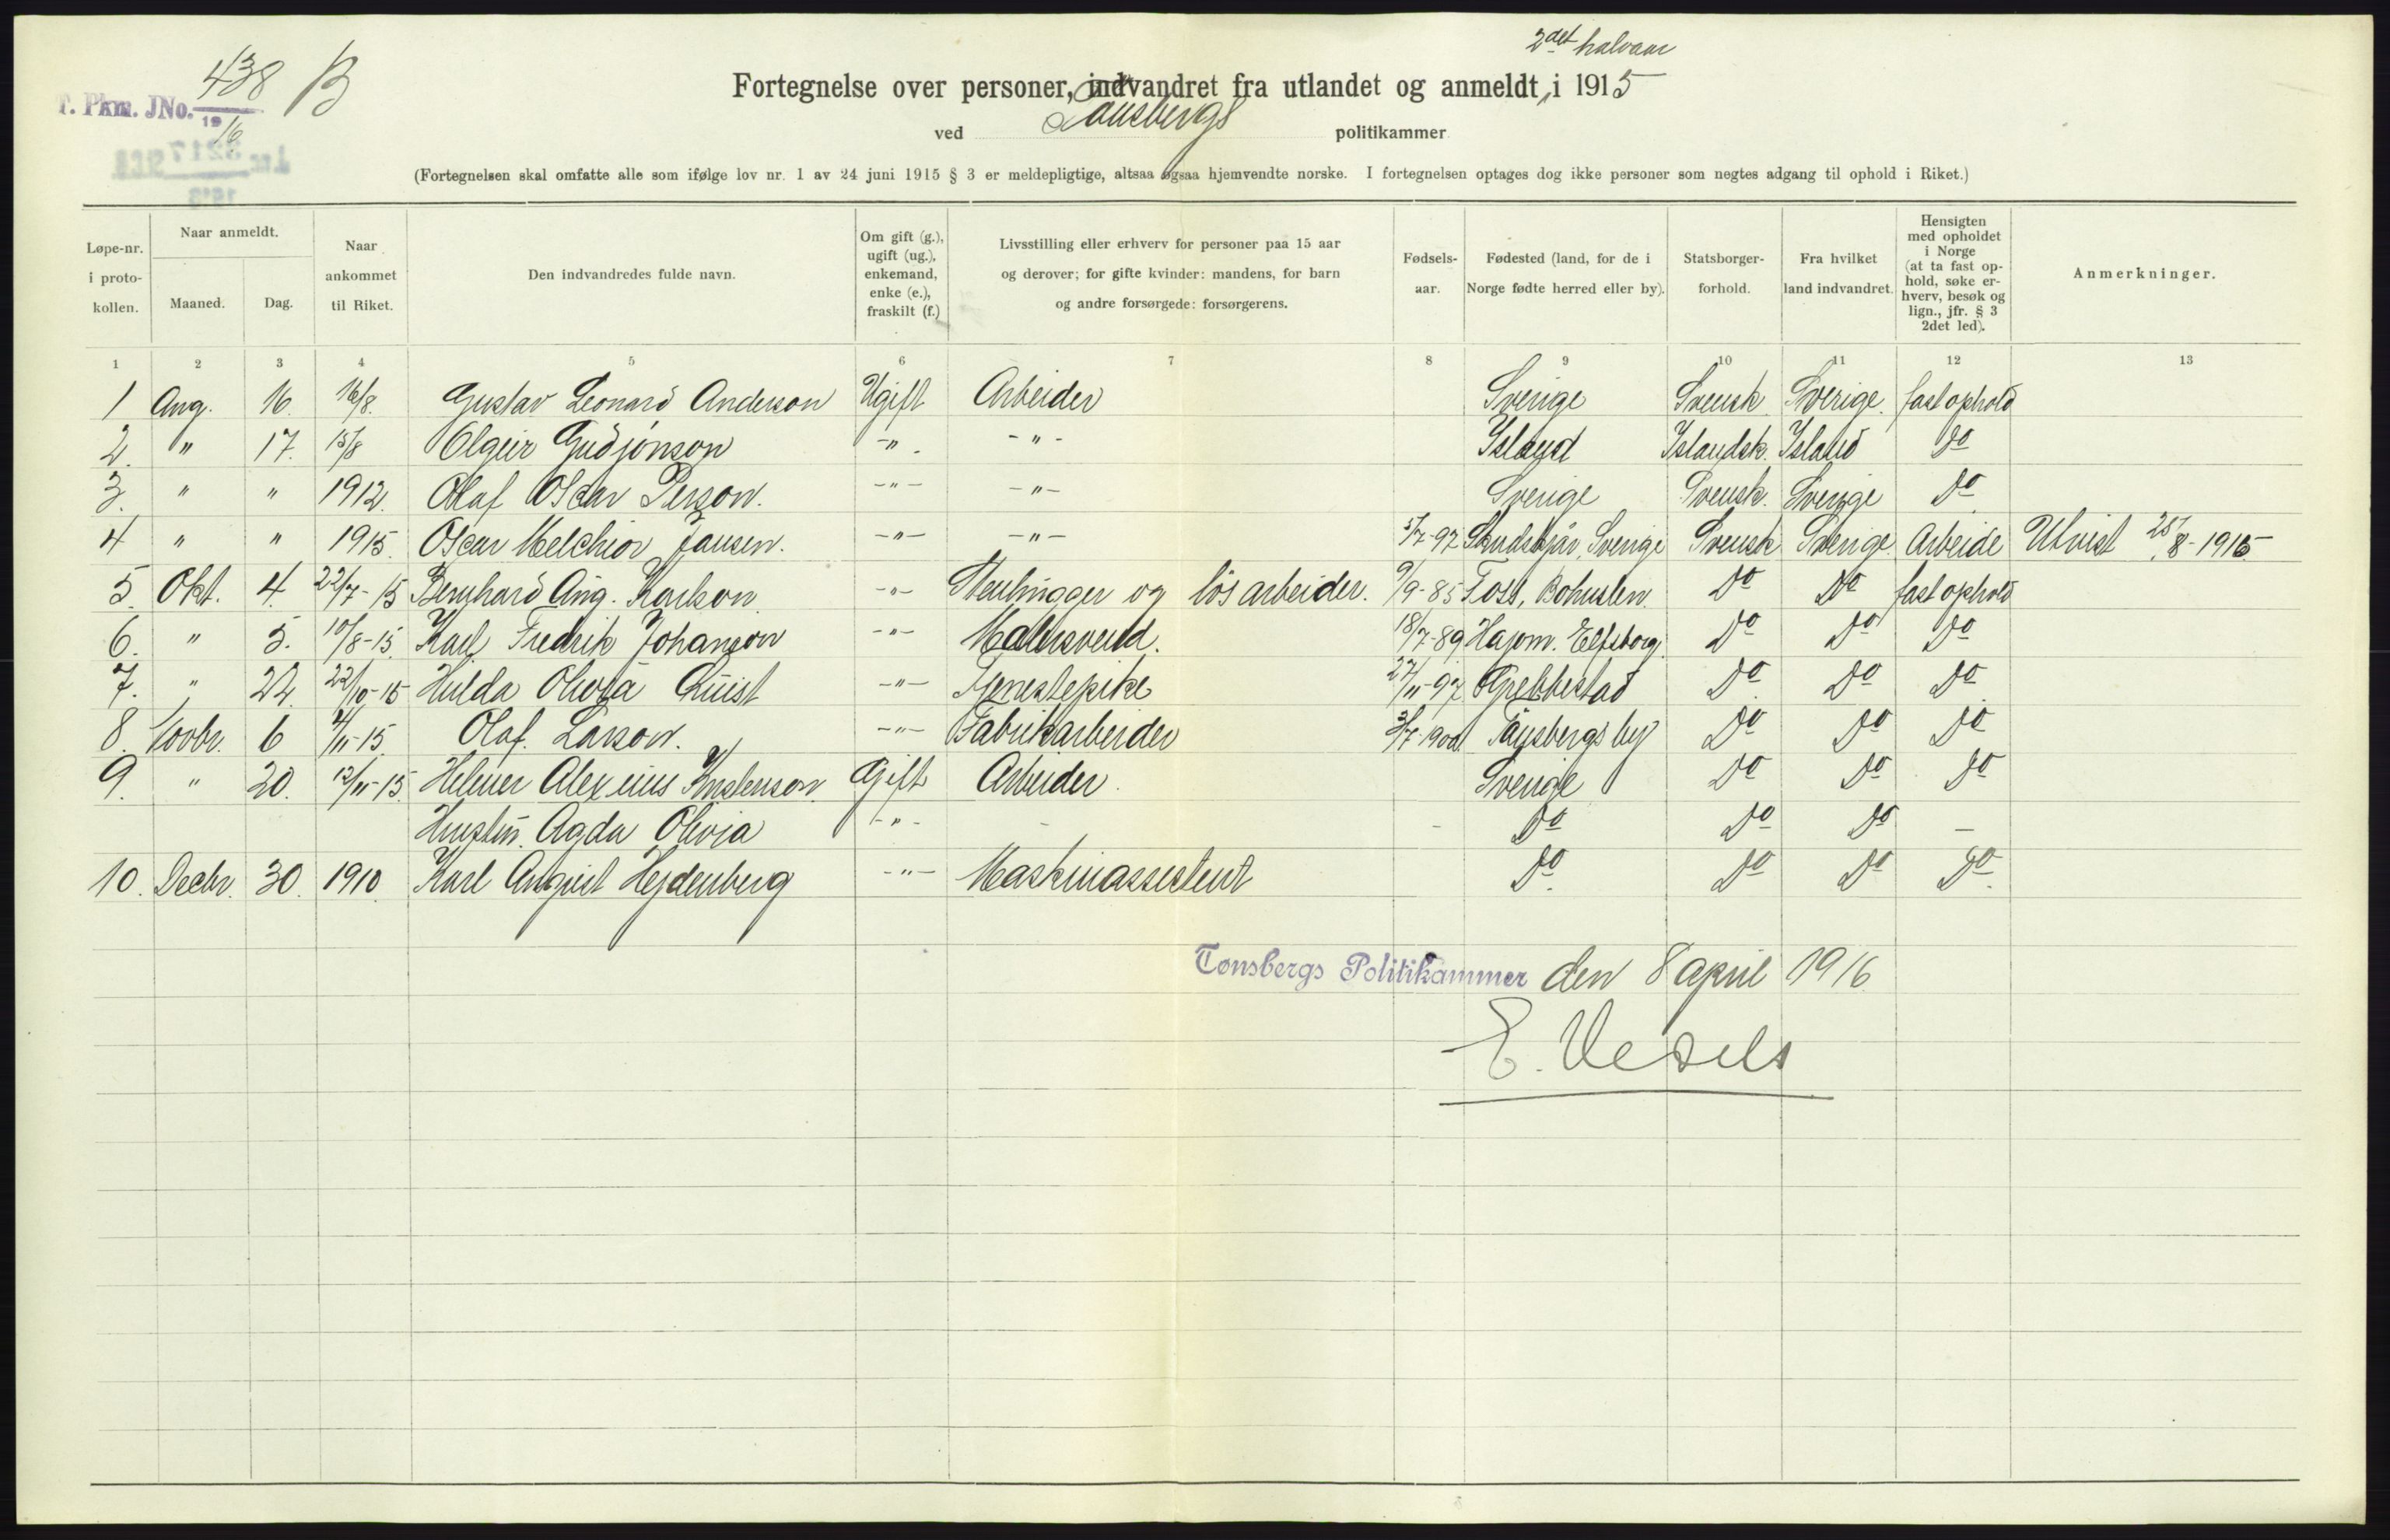 438 B
T. Pkm. JNo.
19
16
2det halvaar
Fortegnelse over personer, indvandret fra utlandet og anmeldt, i 1915
ved Tønsbergs politikammer
(Fortegnelsen skal omfatte alle som ifølge lov nr. 1 av 24 juni 1915 § 3 er meldepligtige, altsaa ogsaa hjemvendte norske. I fortegnelsen optages dog ikke personer som negtes adgang til ophold i Riket.)
Løpe-nr. i proto-kollen. Naar anmeldt. Maaned. Dag. Naar ankommet til Riket. Den indvandredes fulde navn. Om gift (g.), ugift (ug.), enkemand, enke (e.), fraskilt (f.) Livsstilling eller erhverv for personer paa 15 aar og derover; for gifte kvinder: mandens, for barn og andre forsørgede: forsørgerens. Fødsels-aar. Fødested (land, for de i Norge fødte herred eller by). Statsborger-forhold. Fra hvilket land indvandret. Hensigten med opholdet i Norge (at ta fast op-hold, søke er-hverv, besøk og lign., jfr. § 3 2det led). Anmerkninger.
1 2 3 4 5 6 7 8 9 10 11 12 13
1 Aug. 16. 16/8. Gustav Leonard Anderson Ugift Arbeider Sverige Svensk Sverige. fast ophold
2. " 17. 15/8 Olgeir Gudjónson -"- -"- Island Islandsk. Island Do
3. " " 1912. Olaf Oscar Person. -"- -"- Sverige Svensk. Sverige Do
4 " " 1915. Oscar Melchior Jansen. -"- -"- 5/7-97 Sverige Svensk Sverige Arbeide Utvist 25/8-1915
5. Okt. 4. 22/7-15 Bernhard Aug. Karlson -"- Stenhugger og løsarbeider. 9/9-85 Foss, Bohuslen. Do Do fast ophold
6. " 5. 10/8-15. Karl Fredrik Johanson -"- Malersvend. 18/7-89 Hajom. Elfsborg. Do Do Do
7. " 22. 22/10-15 Hulda Olivia Quist -"- Tjenestepike 27/11-97 Grebbestad Do Do Do
8. Novbr. 6 4/11-15. Olaf Larson. -"- Fabrikarbeider 3/7-1900 Do Do Do
9. " 20. 12/11-15. Helmer Alexius Kristenson. Gift Arbeider. Sverige Do Do Do
Hustru. Agda Olivia -"- - - Do Do Do -
10. Decbr. 30. 1910. Karl August Hejdenberg -"- Maskinassistent Do. Do Do Do.
Tønsbergs Politikammer den 8 april 1916